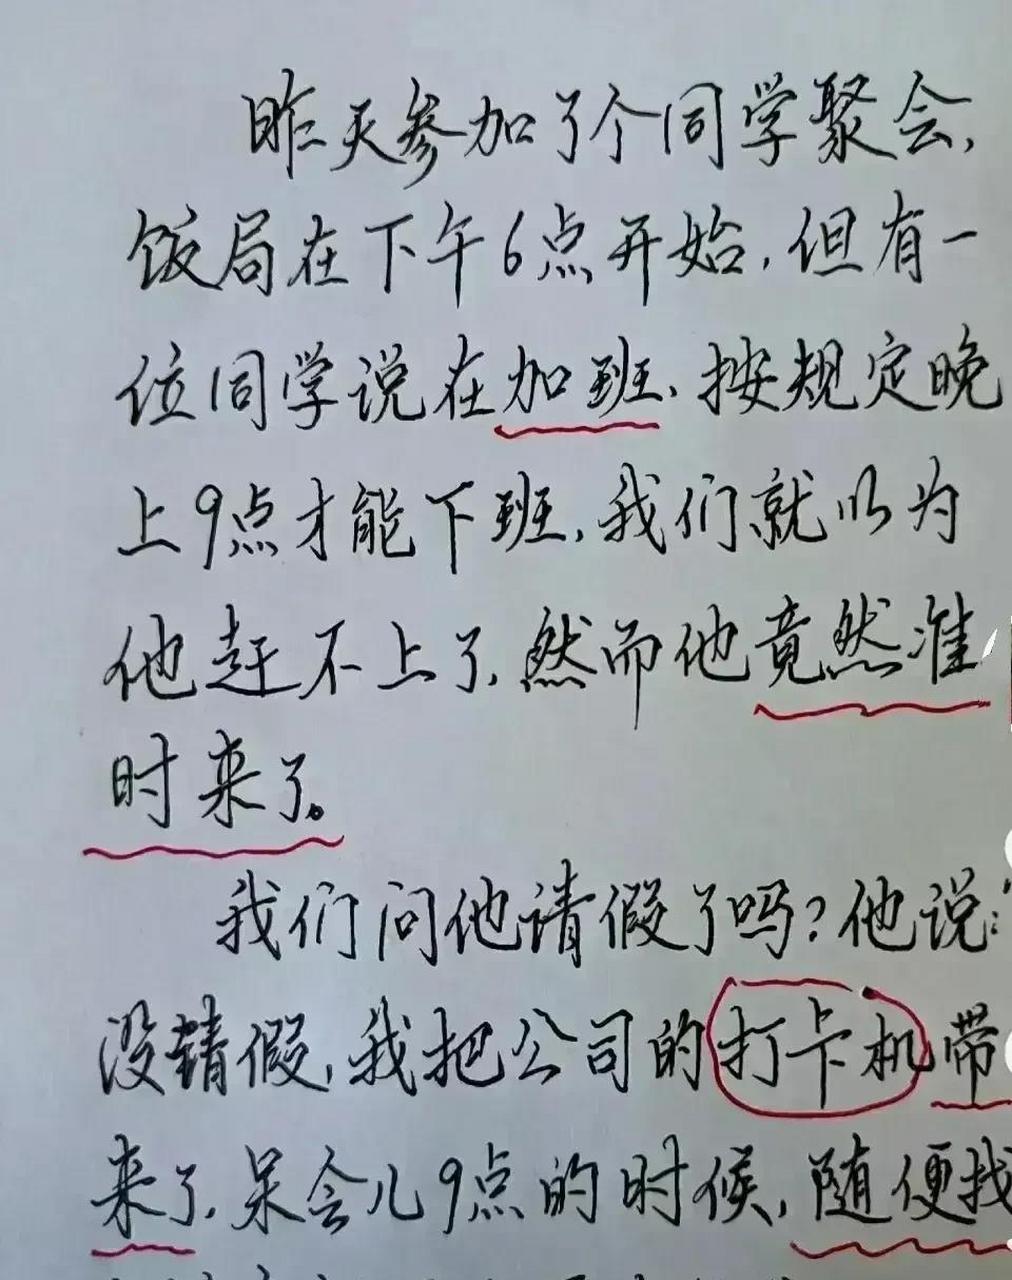 昨天参加了个同学聚会,
饭局在下午6点开始,但有一
位同学说在加班,按规定晚
上9点才能下班,我们就以为
他赶不上了,然而他竟然准
时来了。
我们问他请假了吗?他说:“
没请假,我把公司的打卡机带
来了,呆会儿9点的时候,随便找